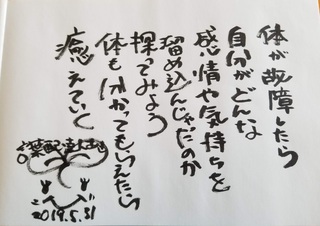 体が故障したら
自分がどんな
感情や気持ちを
溜め込んじゃだのか
探ってみよう
体も分かってもらえたら
癒えていく
2019.5.31